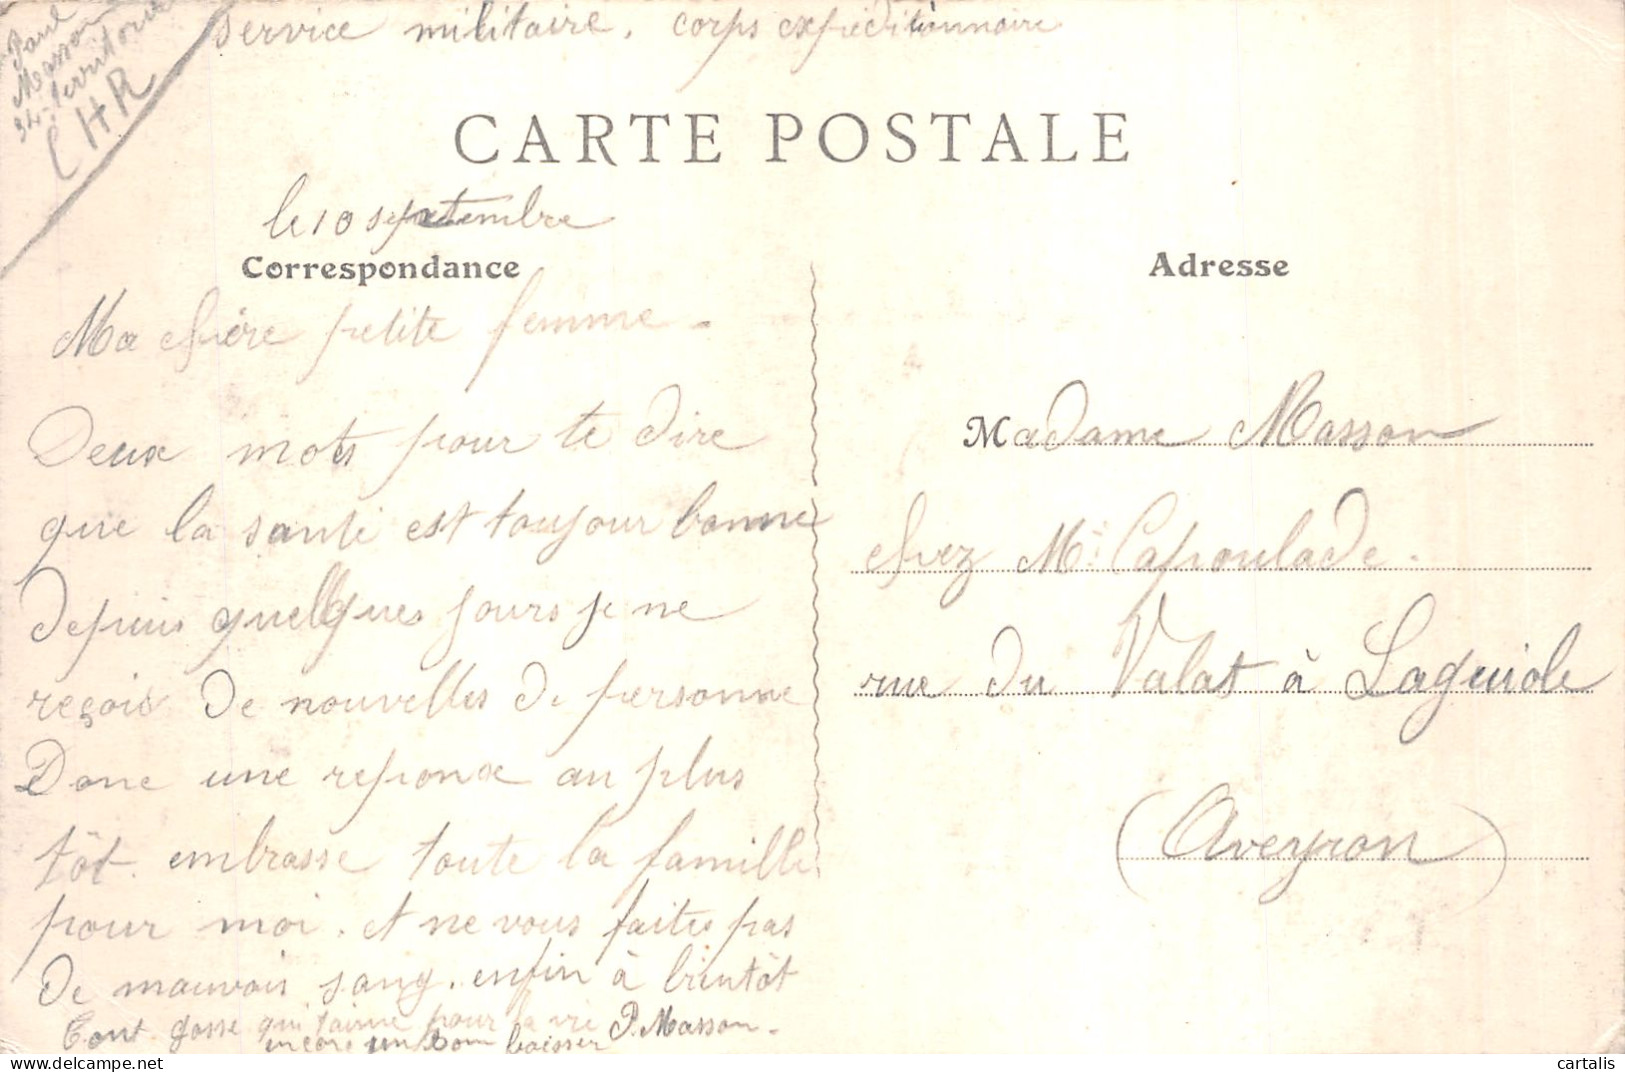 Paul
Masson
34 territorial
CHR
service militaire. corps expéditionnaire
CARTE POSTALE
le 10 septembre
Correspondance
Ma chère petite femme -
Deux mots pour te dire
que la santé est toujour bonne
Depuis quelques jours je ne
reçois de nouvelles de personne
Donc une reponse au plus
tôt. embrasse toute la famille
pour moi. et ne vous faites pas
de mauvois sang. enfin à bientôt
Ton gosse qui t'aime pour la vie P. Masson -
encore un bon baiser
Adresse
Madame Masson
chez Mr Capoulade.
rue du Valat à Laguiole
(Aveyron)
cartalis